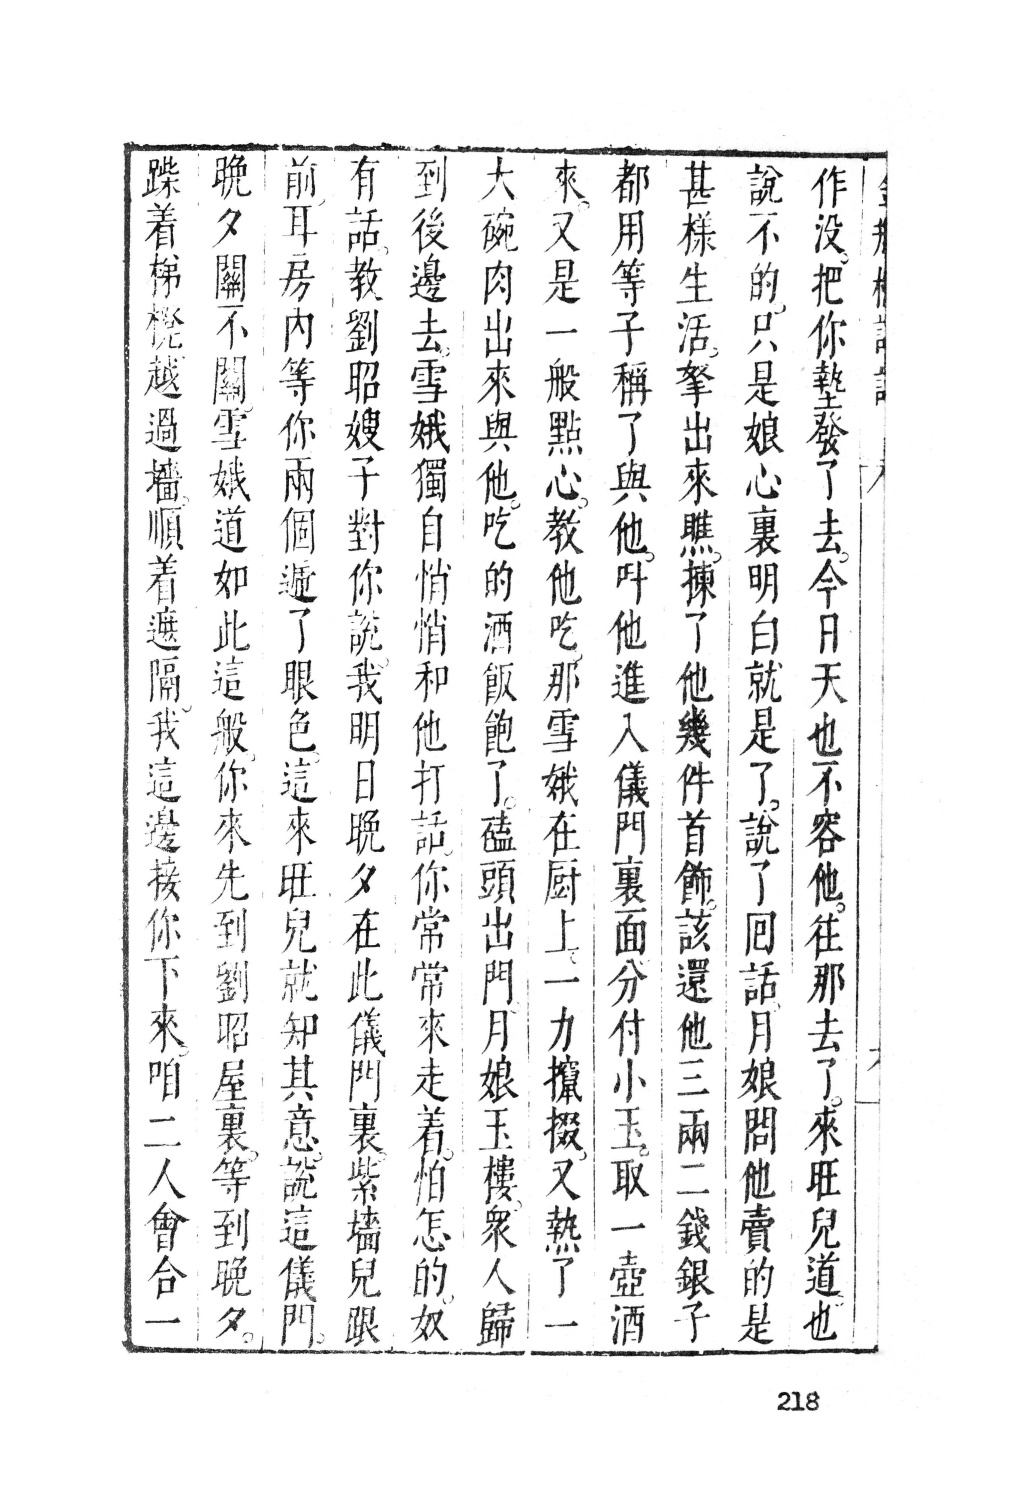 作没。把你墊發了去。今日天也不容他。往那去了。來旺兒道。也
說不的。只是娘心裏明白就是了。說了回話。月娘問他賣的是
甚樣生活。拏出來瞧。揀了他幾件首飾。該還他三兩二錢銀子
都用等子稱了與他。叫他進入儀門裏面。分付小玉。取一壺酒
來。又是一般點心。教他吃。那雪娥在厨上一力攛掇。又熱了一
大碗肉出來與他。吃的酒飯飽了。磕頭出門。月娘玉樓。衆人歸
到後邊去。雪娥獨自悄悄和他打話。你常常來走着。怕怎的。奴
有話。教劉昭嫂子對你說。我明日晚夕在此儀門裏。紫墻兒跟
前。耳房内等你。兩個遞了眼色。這來旺兒就知其意。說這儀門。
晚夕關不關。雪娥道。如此這般。你來先到劉昭屋裏。等到晚夕。
跐着梯櫈越過墻。順着遮隔。我這邊接你下來。咱二人會合一
218